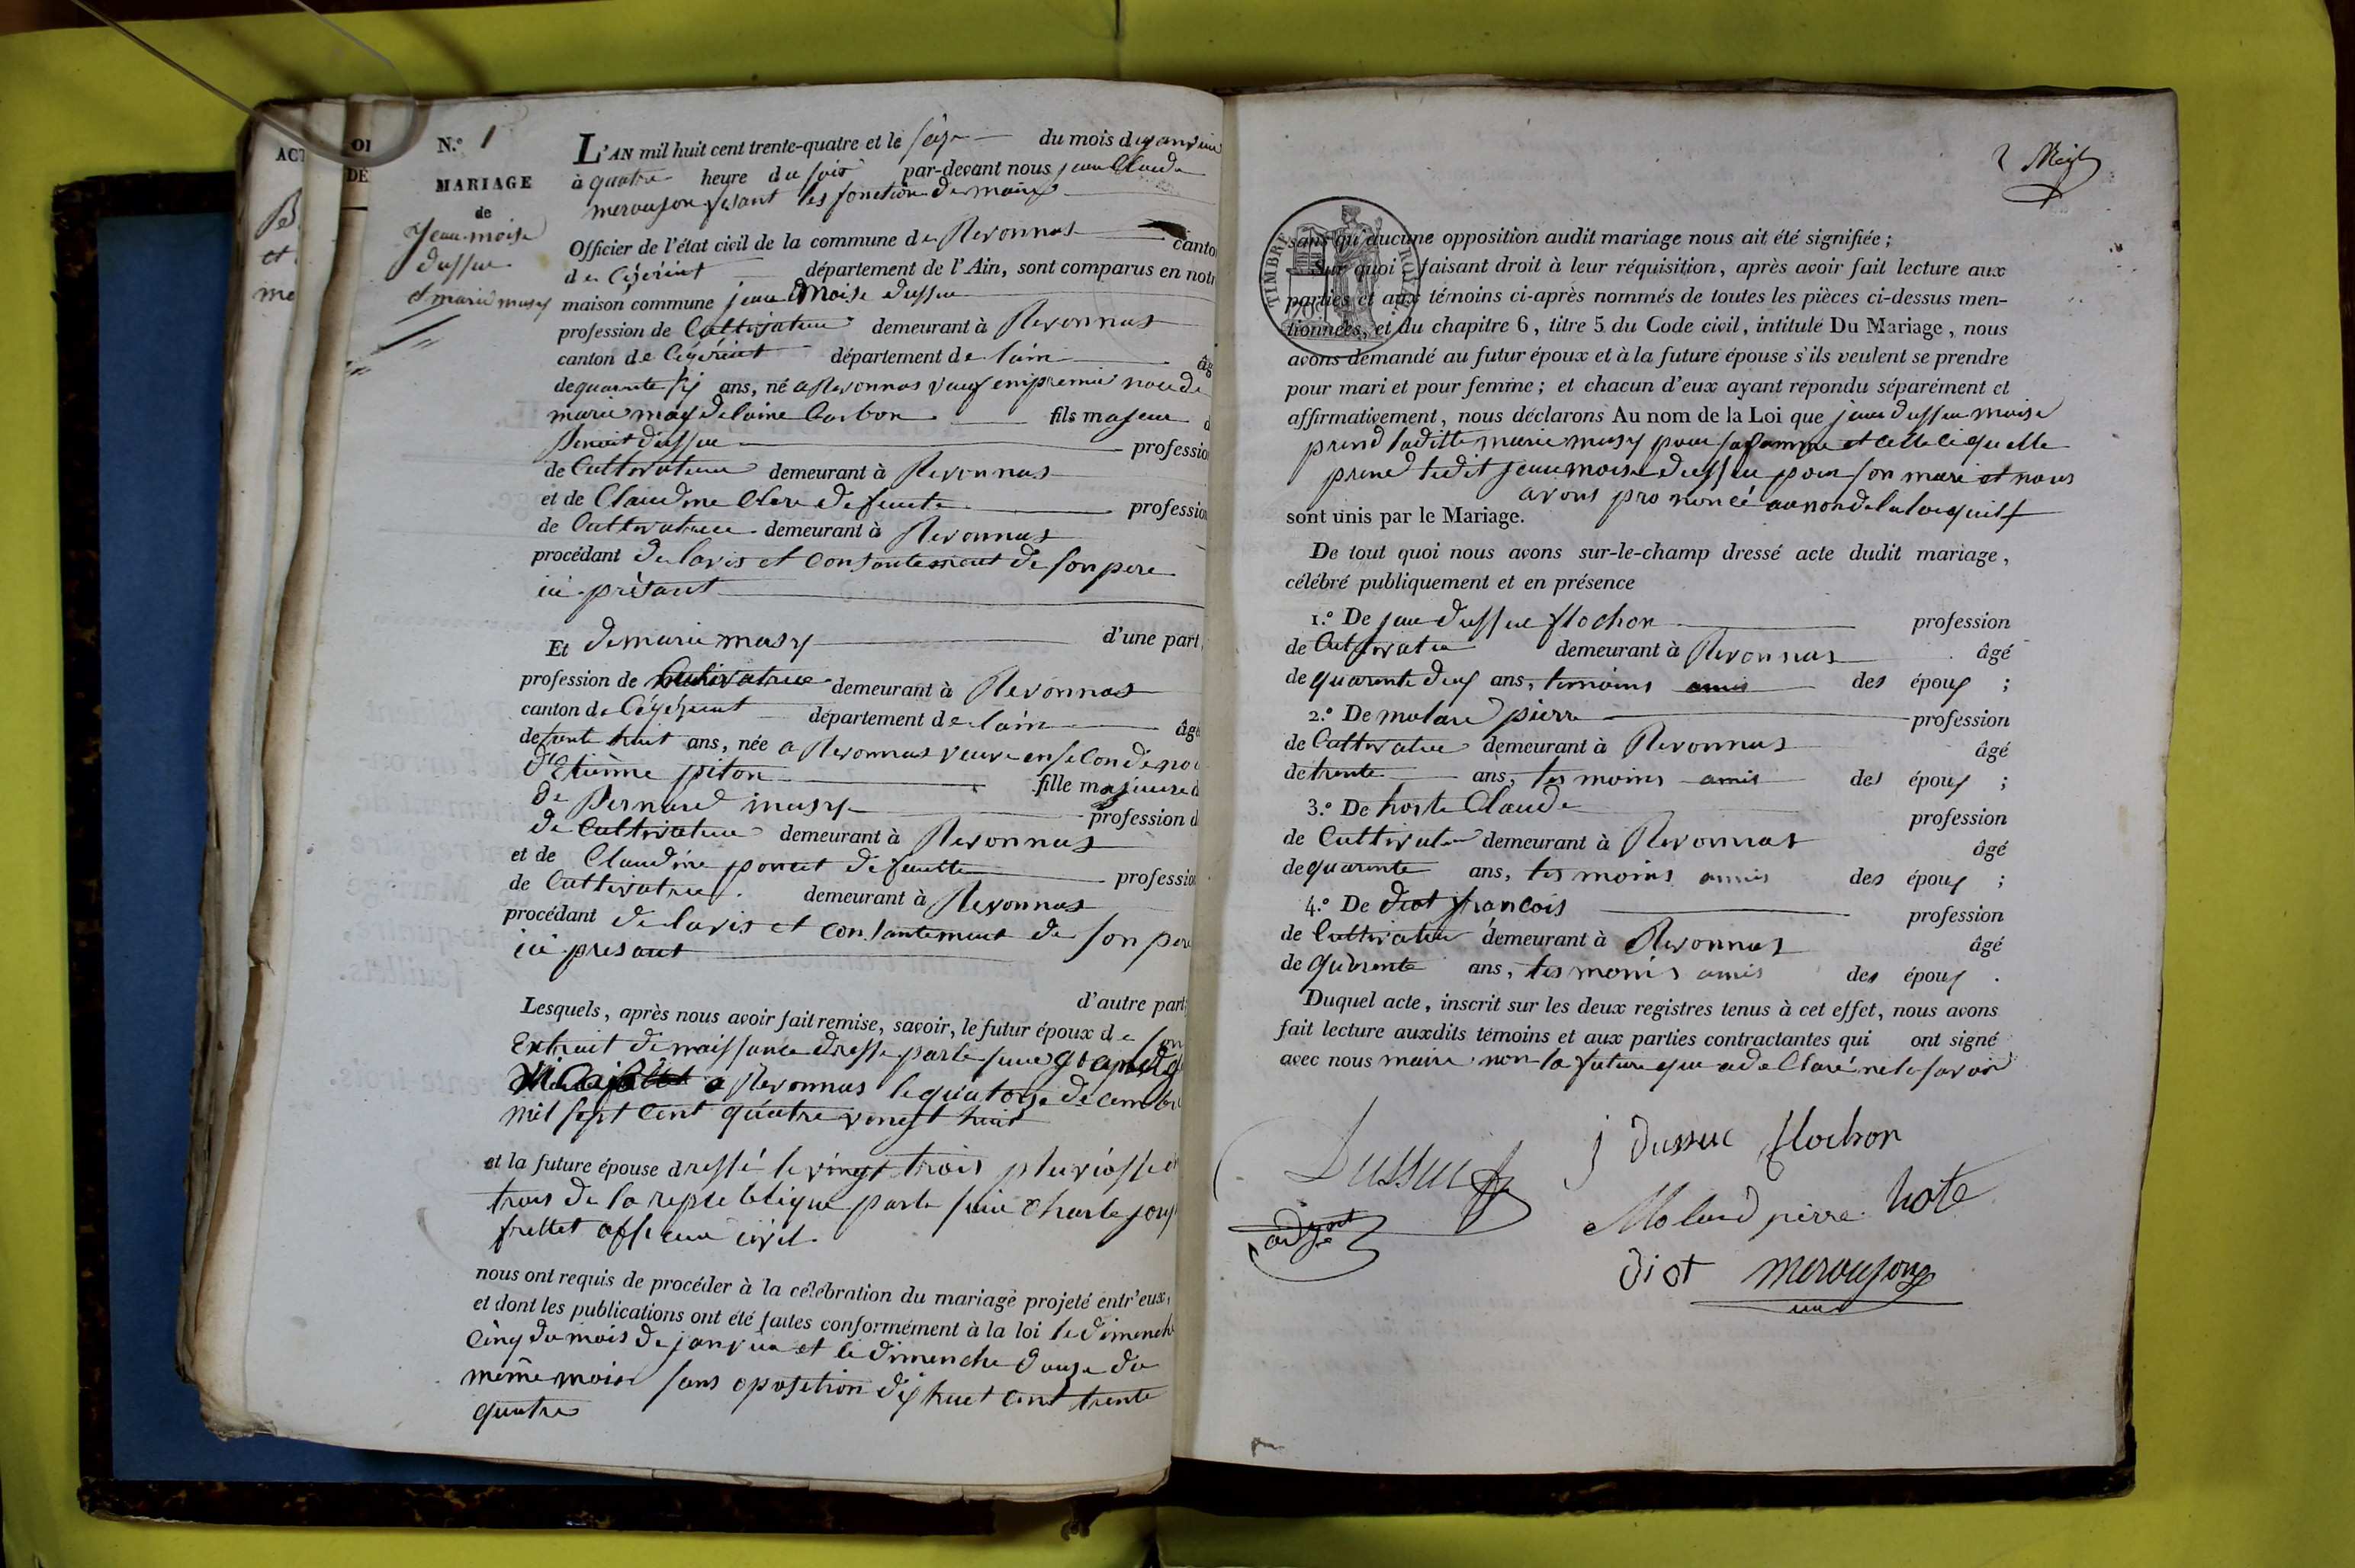 ACT
B
et
me
OI
DE
N.º 1
MARIAGE
de
Jean moise
dussuc
et marie musy
L'AN mil huit cent trente-quatre et le seize du mois de janvier
à quatre heure du soir par-devant nous jean Claude
merouson fesant les fonction de maire
Officier de l'état civil de la commune de Revonnas canto
de Ceyzeriat département de l'Ain, sont comparus en notr
maison commune jean Moise dussuc
profession de Cultivateur demeurant à Revonnas
canton de Ceyzeriat département de lain âg
de quarente six ans, né a Revonnas veuf en premier noce de
marie magdelaine Carbon fils majeur d
Benoit dussuc professio
de Cultivateur demeurant à Revonnas
et de Claudine Clere defunte profession
de Cultivatrice demeurant à Revonnas
procédant de lavis et consantement de son pere
ici présant
Et de marie musy d'une part,
profession de Cultivatrice demeurant à Revonnas
canton de Ceyzeriat département de lain âgé
de trente huit ans, née a Revonnas veuve en seconde noc
d'Etienne piton fille majeure d
de Bernard musy profession d
de Cultivateur demeurant à Revonnas
et de Claudine poncet défunte professio
de Cultivatrice demeurant à Revonnas
procédant de lavis et consantement de son pere
ici presant
d'autre part;
Lesquels, après nous avoir fait remise, savoir, le futur époux de son
Extrait de naissance dressé par le sieur
a Revonnas le quatorze décembre
mil sept cent quatre vingt huit
et la future épouse dressé le vingt trois pluviosse
trois de la republique par le sieur Charle
frellet officier civil
nous ont requis de procéder à la célébration du mariage projeté entr'eux,
et dont les publications ont été faites conformément à la loi le dimenche
Cinq du mois de janvier et le dimenche douze du
même mois sans oposition dix huit cent trente
quatre
sans qu'aucune opposition audit mariage nous ait été signifiée;
TIMBRE ROYAL
Sur quoi faisant droit à leur réquisition, après avoir fait lecture aux
parties et aux témoins ci-après nommés de toutes les pièces ci-dessus men-
tionnées, et du chapitre 6, titre 5 du Code civil, intitulé Du Mariage, nous
avons demandé au futur époux et à la future épouse s'ils veulent se prendre
pour mari et pour femme; et chacun d'eux ayant répondu séparément et
affirmativement, nous déclarons Au nom de la Loi que jean dussuc moise
prend laditte marie musy pour sa famme et celle ci quelle
prend ledit jean moise dussuc pour son mari et nous
avons prononcé au nom de la loi quils
sont unis par le Mariage.
De tout quoi nous avons sur-le-champ dressé acte dudit mariage,
célébré publiquement et en présence
1.º De jean dussuc flochon profession
de Cultivateur demeurant à Revonnas âgé
de quarente deux ans, temoins amis des époux ;
2.º De molard pierre profession
de Cultivateur demeurant à Revonnas âgé
de trente ans, tesmoins amis des époux ;
3.º De hoste Claude profession
de Cultivateur demeurant à Revonnas âgé
de quarente ans, tesmoins amis des époux ;
4.º De diot francois profession
de Cultivateur demeurant à Revonnas âgé
de quarente ans, tesmoins amis des époux .
Duquel acte, inscrit sur les deux registres tenus à cet effet, nous avons
fait lecture auxdits témoins et aux parties contractantes qui ont signé
avec nous maire non la future qui a declaré ne le savoir
Dussuc
j dussuc flochon
Molard pierre hote
adjoint
diot merouson